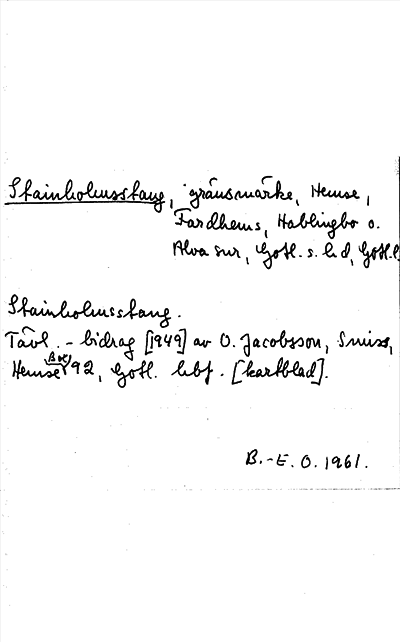 Stainholmsstang, gränsmärke, Hemse,
Fardhems, Hablingbo o.
Alva snr, Gotl. s. hd, Gotl. l
Stainholmsstang.
Tävl. - bidrag [1949] av O. Jacobsson, Smiss,
Hemse Box 92, Gotl. hbf. [kartblad].
B.-E. O. 1961.